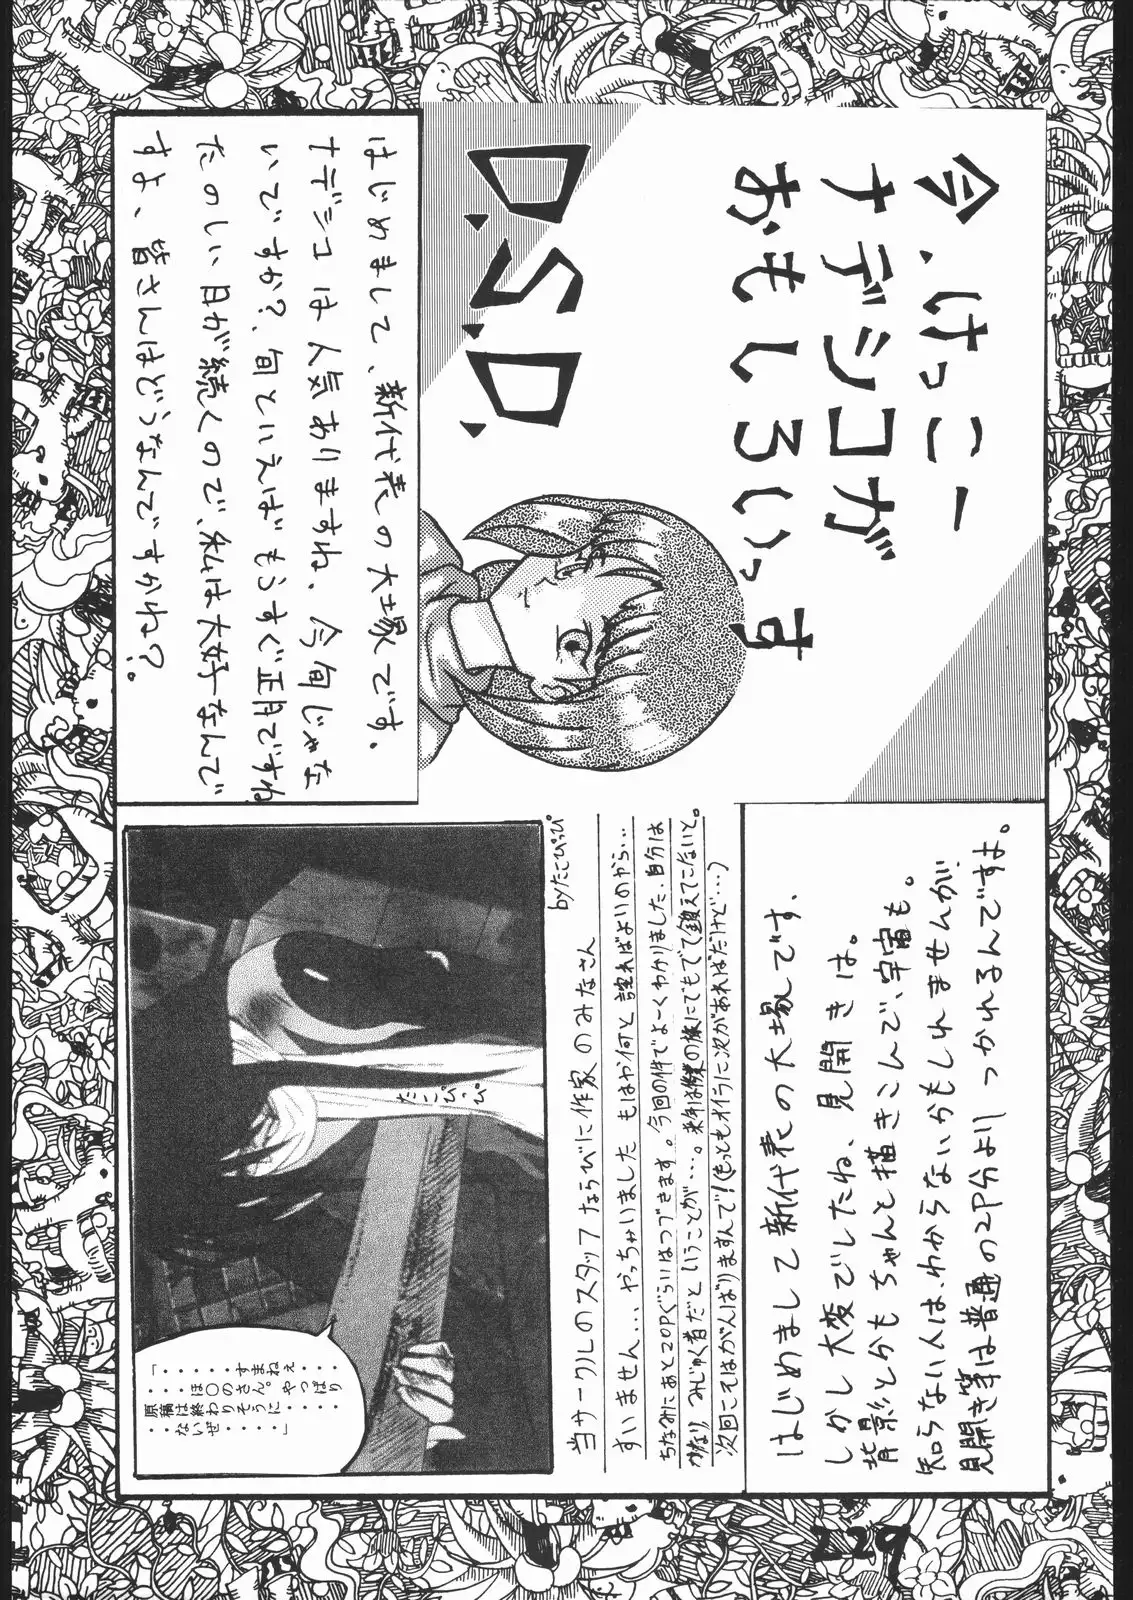 今、けっこー
ナデシコが
おもしろいっす
D.S.D.
はじめまして、新代表の大塚です。
ナデシコは人気ありますね、今旬じゃな
いですか?、旬といえばもうすぐ正月ですね
たのしい日が続くので、私は大好なんで
すよ、皆さんはどうなんですかね?。
はじめまして新代表の大塚です、
しかし大変でしたね、見開きは。
背景とかもちゃんと描きこんで、宇宙も。
知らない人は、わからないかもしれませんが、
見開き等は普通の2P分よりつかれるんですよ。
当サークルのスタッフならびに作家のみなさん
すいません、、、やっちゃいました もはや何と謝ればよいのやら…
ちなみにあと20Pぐらいはつづきます。今回の件でよーくわかりました、自分は
かなりみじゅく者だということが…。来年は修業の旅にでもでて鍛えてこないと。
次回こそはがんばりますんで!(もっともオイラに次があればだけど…)
byたこぴっぴ
たこぴっぴ
「・・・・・・すまねぇ・・・
・・・・ほ〇のさん。やっぱり
原稿は終わりそうに・・・・・
・・ないぜ・・・・」
229